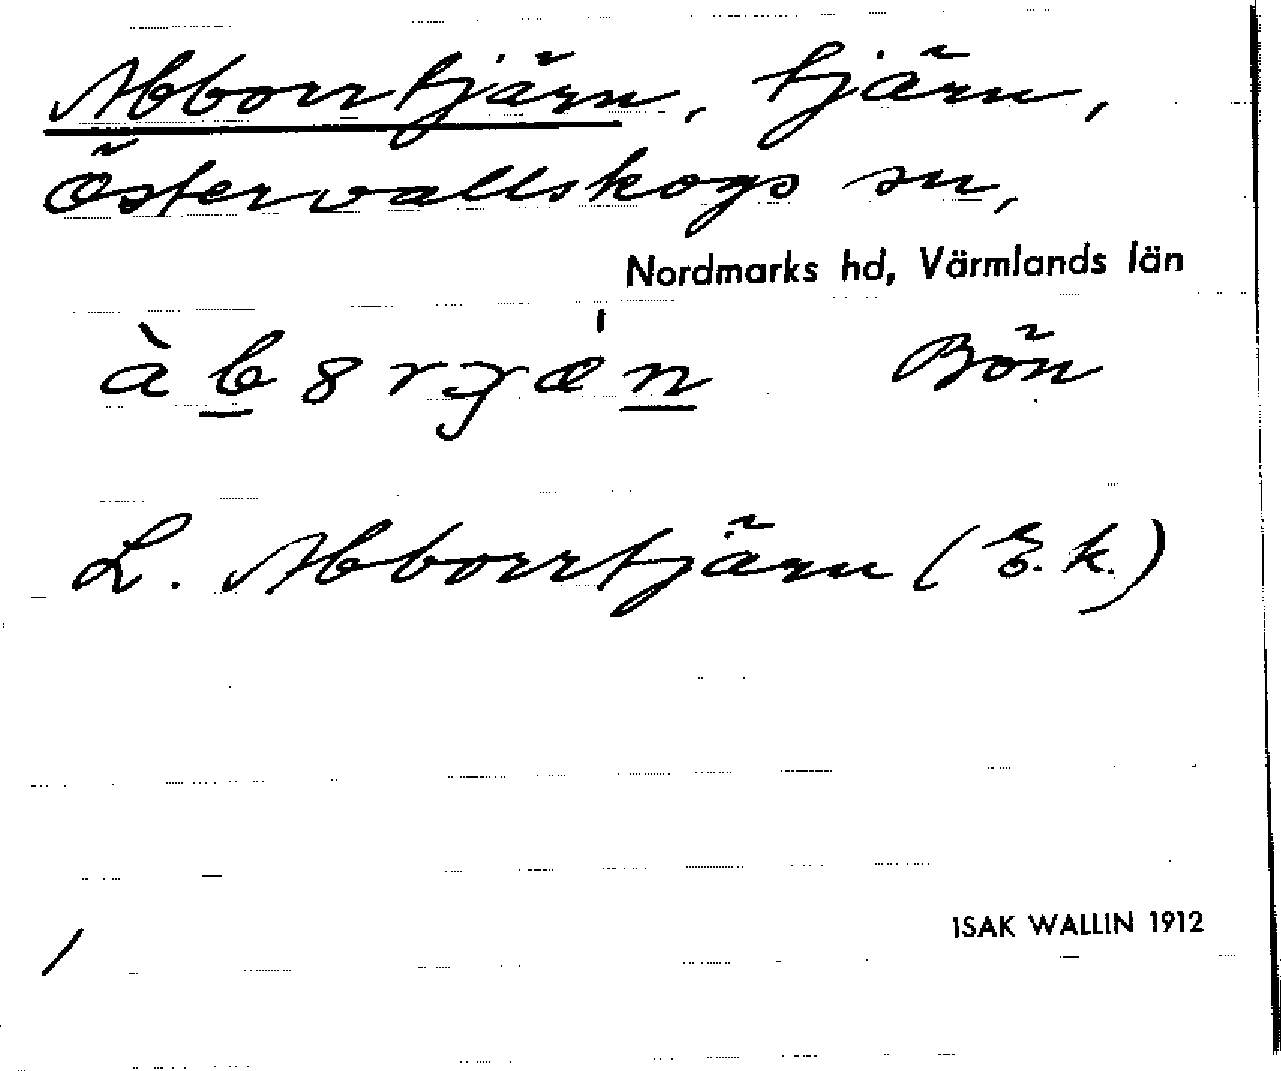 Abborrtjärn, tjärn,
Östervallskogs sn,
Nordmarks hd, Värmlands län
Bön
L. Abborrtjärn (E.k.)
ISAK WALLIN 1912